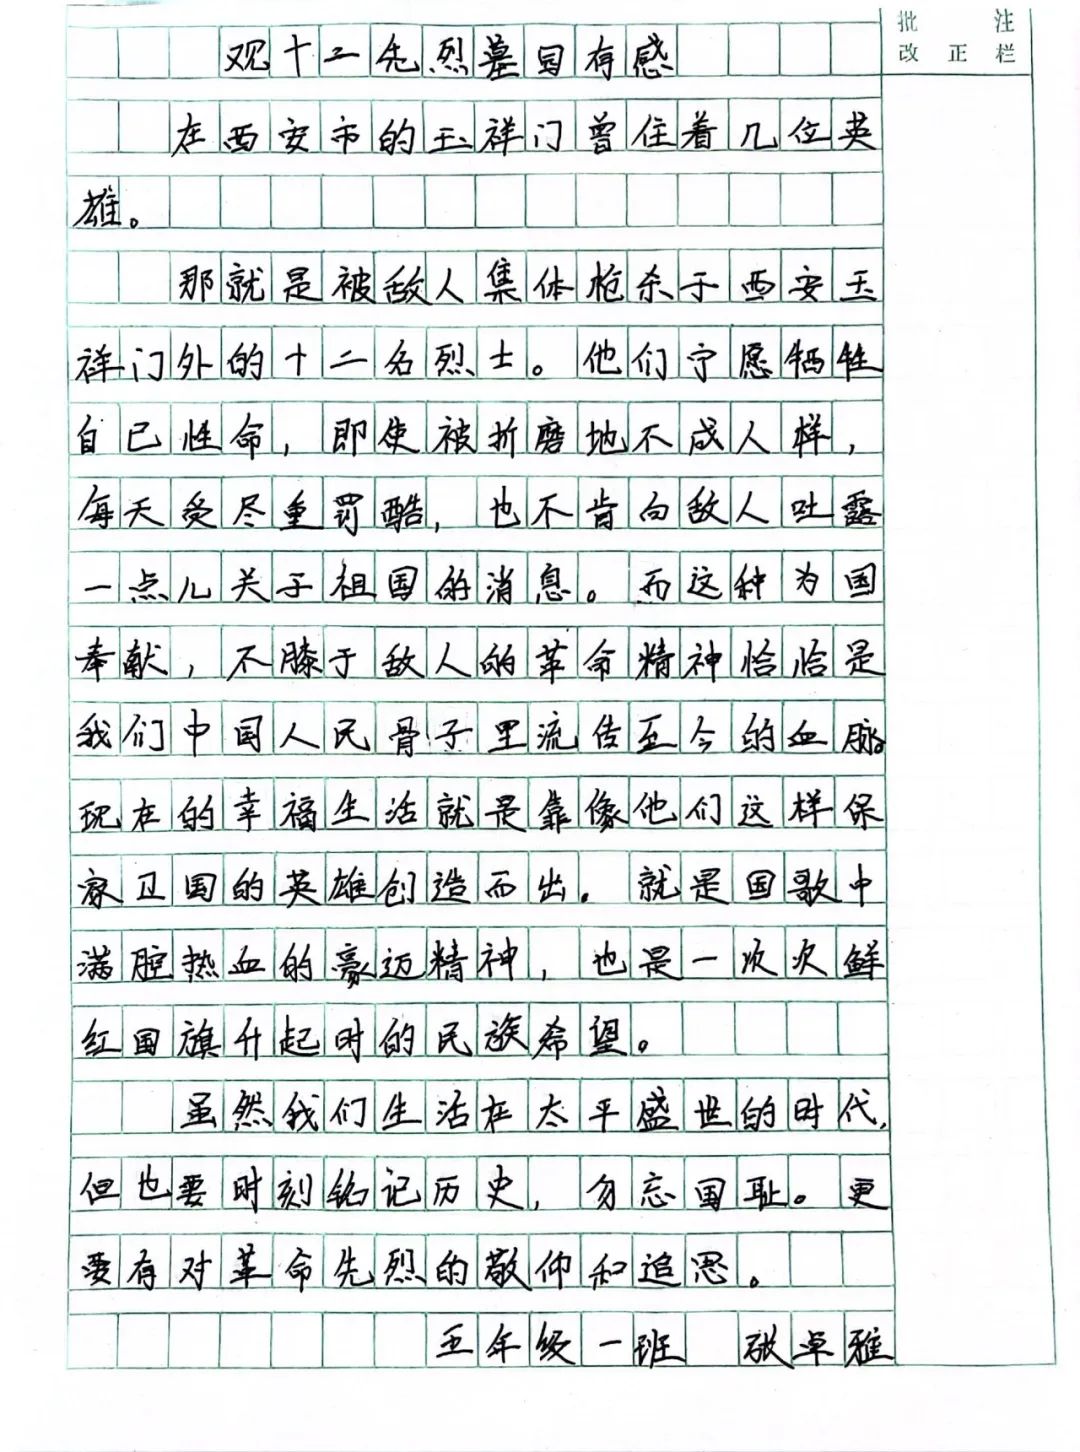 批 注
改 正 栏
观十二先烈墓园有感
在西安市的玉祥门曾住着几位英
雄。
那就是被敌人集体枪杀于西安玉
祥门外的十二名烈士。他们宁愿牺牲
自己性命，即使被折磨地不成人样，
每天受尽重罚酷，也不肯向敌人吐露
一点儿关于祖国的消息。而这种为国
奉献，不膝于敌人的革命精神恰恰是
我们中国人民骨子里流传至今的血脉
现在的幸福生活就是靠像他们这样保
家卫国的英雄创造而出。就是国歌中
满腔热血的豪迈精神，也是一次次鲜
红国旗升起时的民族希望。
虽然我们生活在太平盛世的时代，
但也要时刻铭记历史，勿忘国耻。更
要有对革命先烈的敬仰和追思。
五年级一班 张卓雅